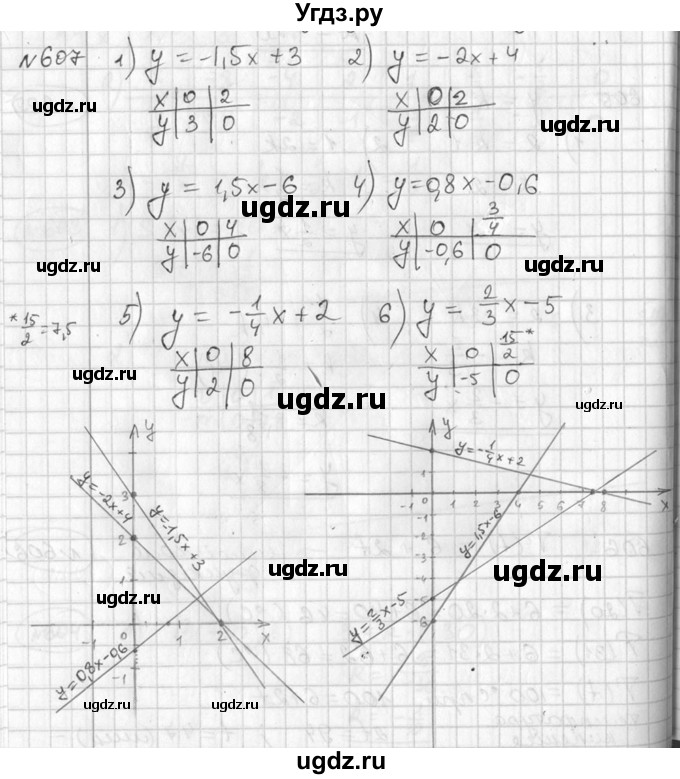 Угдз.ру
№607 1) y = -1,5x + 3 2) y = -2x + 4
x 0 2
y 3 0
x 0 2
y 2 0
ugdz.ru
ugdz.ru
3) y = 1,5x - 6 4) y = 0,8x - 0,6
ugdz.ru
x 0 4
y -6 0
x 0 3/4
y -0,6 0
ugdz.ru
ugdz.ru
* 15/2 = 7,5 5) y = -1/4 x + 2 6) y = 2/3 x - 5
x 0 8
y 2 0
x 0 15/2 *
y -5 0
ugdz.ru
ugdz.ru
ugdz.ru
y
y = -2x+4
y = -1,5x+3
3
2
1
-1 0 1 2 x
-1
y = 0,8x-0,6
y
y = -1/4 x + 2
-1 0 1 2 3 4 5 6 7 8 x
-1
-2
-4
-5
-6
y = 1,5x-6
y = 2/3 x - 5
ugdz.ru
ugdz.ru
ugdz.ru
ugdz.ru
ugdz.ru
ugdz.ru
ugdz.ru
ugdz.ru